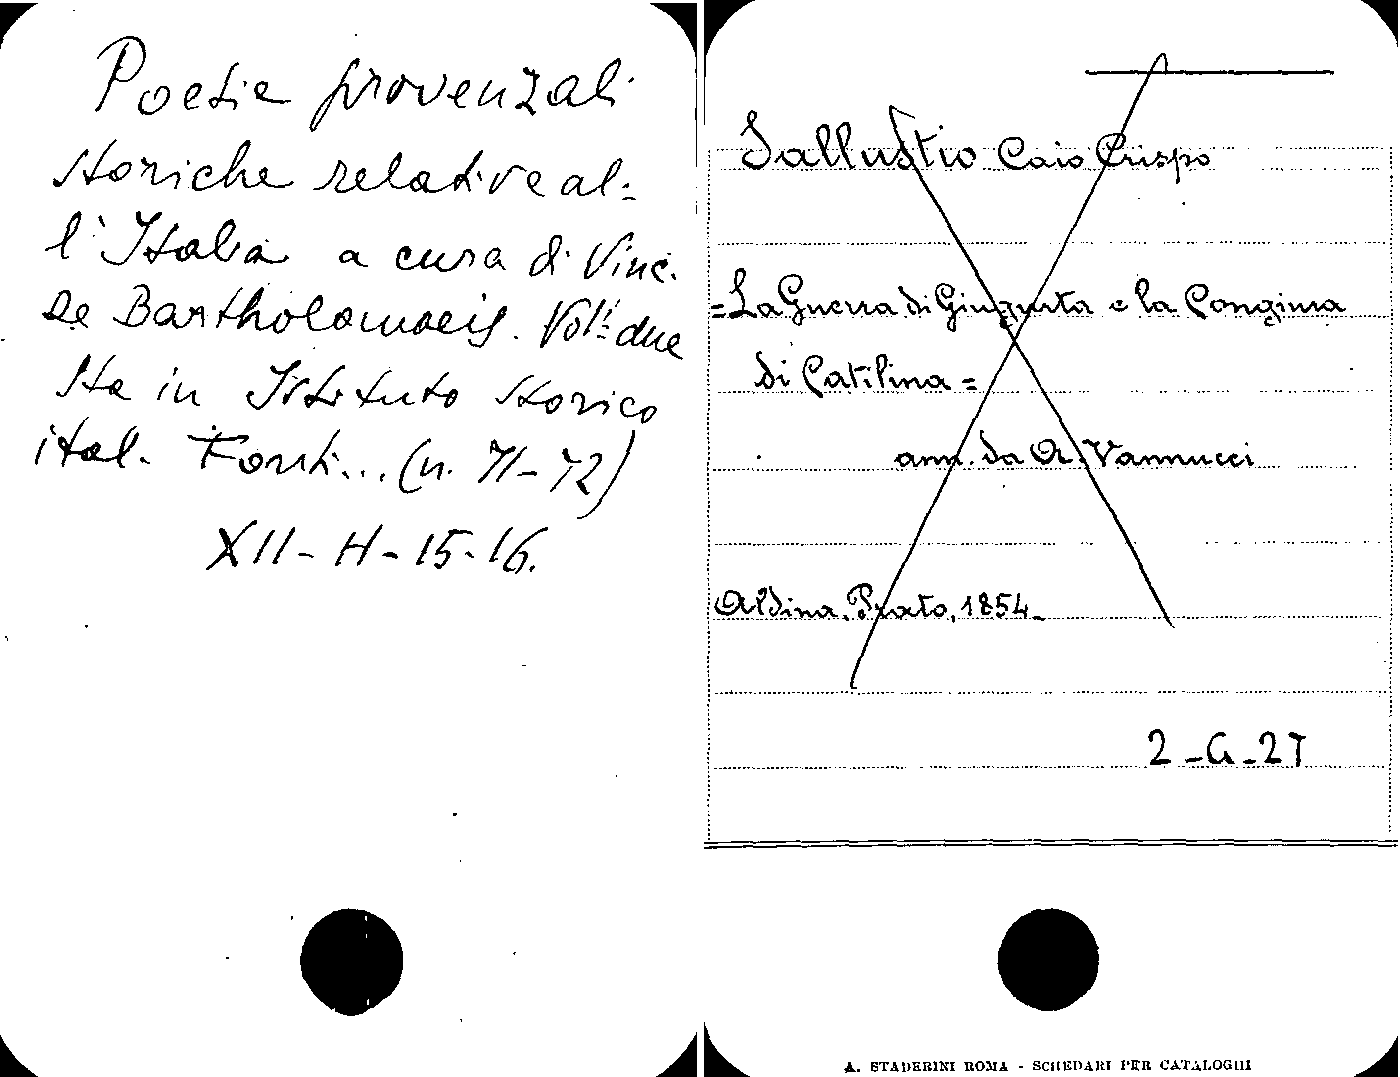 Poesie provenzali
storiche relative al=
l'Italia a cura di Vinc.
De Bartholomaeis. Vol.i due
Sta in Istituto Storico
ital. Fonti... (n. 71-72)
XII-H-15-16.
Sallustio Caio Crispo
=La Guerra di Giugurta e la Congiura
di Catilina=
ann. da A. Vannucci
Aldina, Prato, 1854_
2_G_27
A. STADERINI ROMA - SCHEDARI PER CATALOGHI